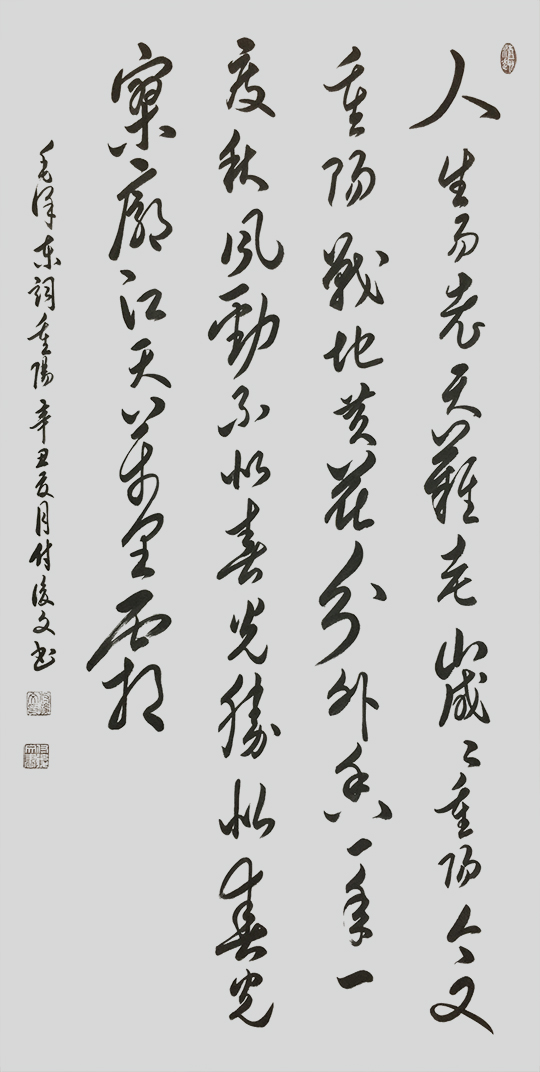 人生易老天難老歲〻重陽今又
重陽戰地黄花分外香一年一
度秋風勁不似春光勝似春光
寥廓江天萬里霜
毛澤東詞重陽辛丑夏月付俊文书